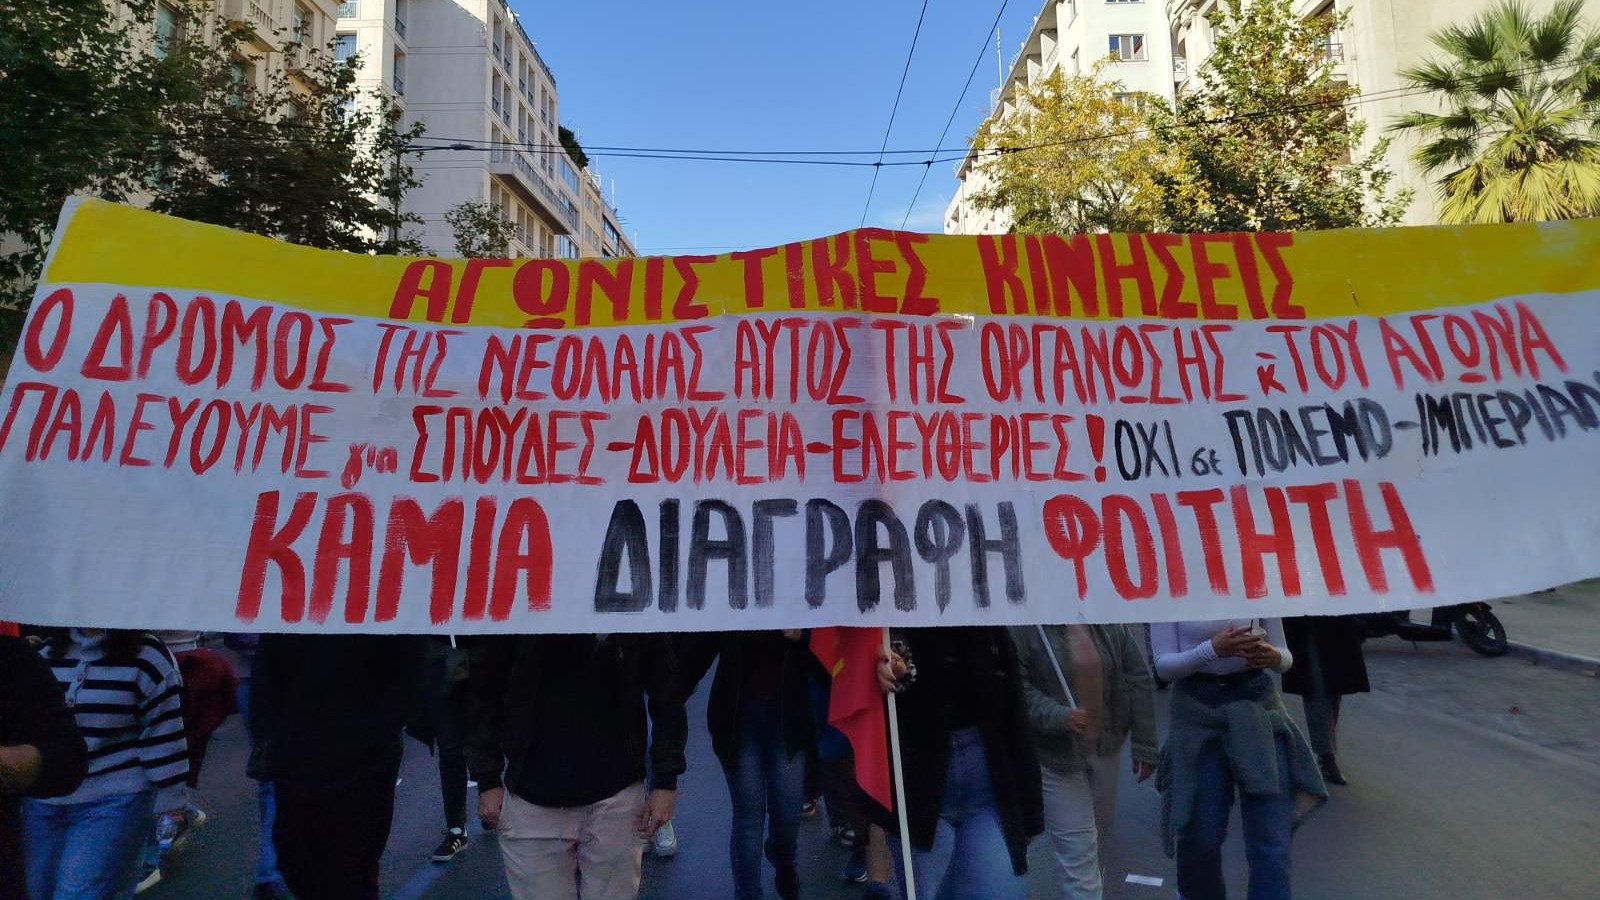 ΑΓΩΝΙΣΤΙΚΕΣ ΚΙΝΗΣΕΙΣ
Ο ΔΡΟΜΟΣ ΤΗΣ ΝΕΟΛΑΙΑΣ ΑΥΤΟΣ ΤΗΣ ΟΡΓΑΝΩΣΗΣ κ̀ ΤΟΥ ΑΓΩΝΑ
ΠΑΛΕΥΟΥΜΕ για ΣΠΟΥΔΕΣ-ΔΟΥΛΕΙΑ-ΕΛΕΥΘΕΡΙΕΣ! ΟΧΙ σε ΠΟΛΕΜΟ-
ΚΑΜΙΑ ΔΙΑΓΡΑΦΗ ΦΟΙΤΗΤΗ